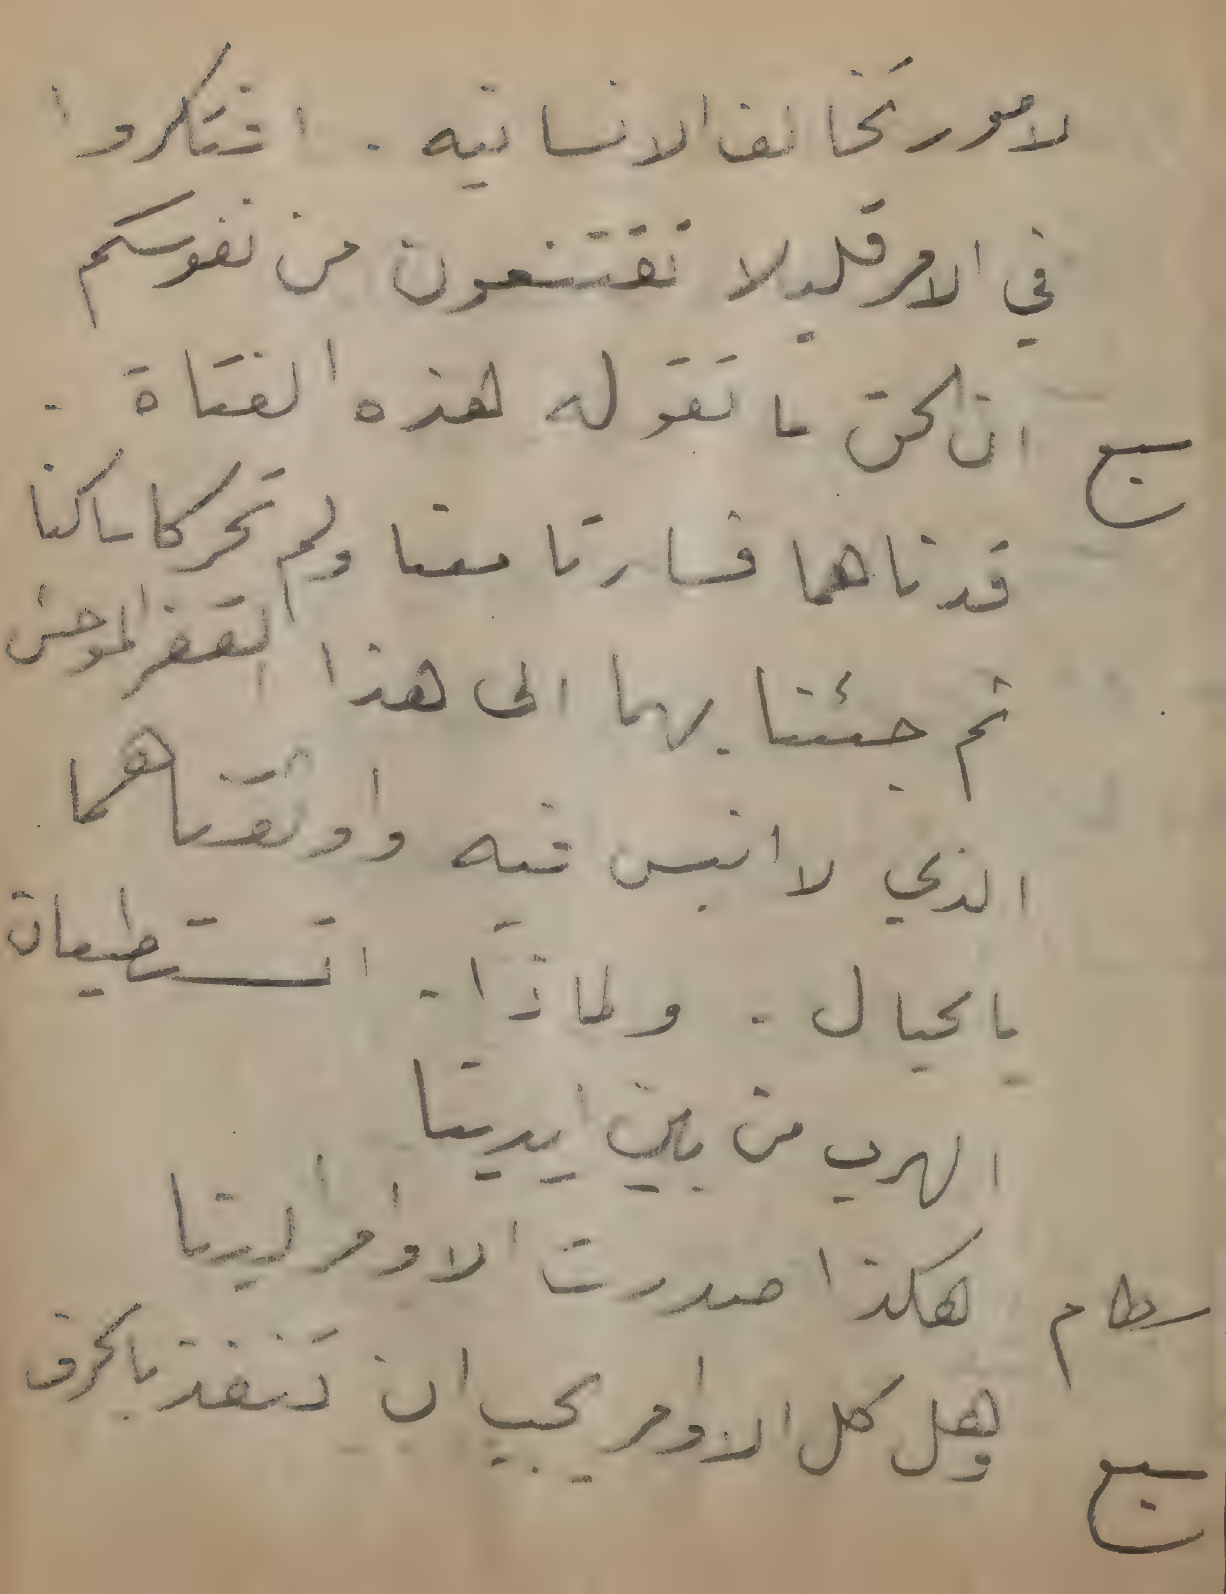 لامور تخالف الانسانيه . افتكروا
في الامر قليلا تقتنعون من نفوسكم
سبع ان الحق ما تقوله هذه الفتاة .
قدناهما فسارتا معنا ولم تحركا ساكنا
ثم جئنا بهما الى هذا القفر الموحش
الذي لا انيس فيه واوثقناهما
بالحبال . ولماذا . اتستطيعان
الهرب من بين ايدينا
سطام هكذا صدرت الاوامر الينا
سبع وهل كل الاوامر يجب ان تنفذ بالحرف